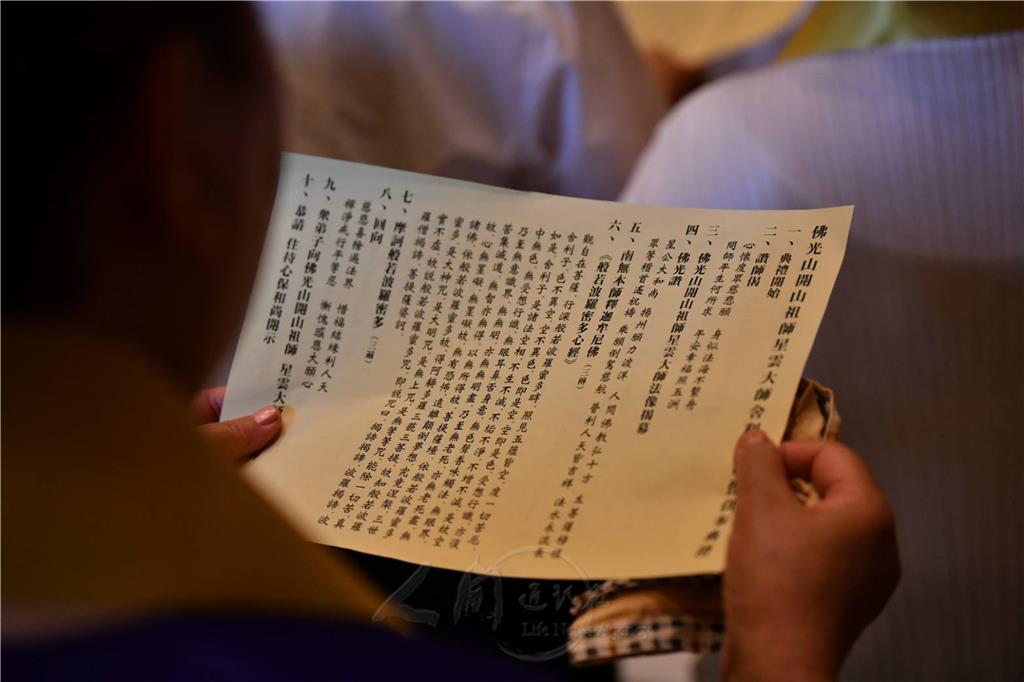 佛光山開山祖師星雲大師舍
一、典禮開始
二、讚師偈
心懷度眾慈悲願　身似法海不繫舟
問師平生何所求　平安幸福照五洲
三、佛光山開山祖師星雲大師法像揭幕
四、佛光讚
星公大和尚　揚州願力波洋　人間佛教弘十方
眾等稽首遙祝禱　乘願倒駕慈航　普利人天皆吉祥　法水永流長
五、南無本師釋迦牟尼佛（三稱）
六、《般若波羅密多心經》
觀自在菩薩，行深般若波羅蜜多時，照見五蘊皆空，度一切苦厄。
舍利子，色不異空，空不異色，色即是空，空即是色，受想行識，亦復
如是。舍利子，是諸法空相，不生不滅，不垢不淨，不增不減，是故空
中無色，無受想行識，無眼耳鼻舌身意，無色聲香味觸法，無眼界，
乃至無意識界，無無明，亦無無明盡，乃至無老死，亦無老死盡，無
苦集滅道，無智亦無得。以無所得故，菩提薩埵，依般若波羅蜜多
故，心無罣礙，無罣礙故，無有恐怖，遠離顛倒夢想，究竟涅槃，三世
諸佛，依般若波羅蜜多故，得阿耨多羅三藐三菩提，故知般若波羅
蜜多，是大神咒，是大明咒，是無上咒，是無等等咒，能除一切苦，真
實不虛，故說般若波羅蜜多咒，即說咒曰：揭諦揭諦，波羅揭諦，波
羅僧揭諦，菩提薩婆訶。
七、摩訶般若波羅密多（三稱）
八、回向
慈悲喜捨遍法界　惜福結緣利人天
禪淨戒行平等忍　慚愧感恩大願心
九、眾弟子向佛光山開山祖師 星雲大
十、恭請 住持心保和尚開示
人間通訊社
Life News Agency